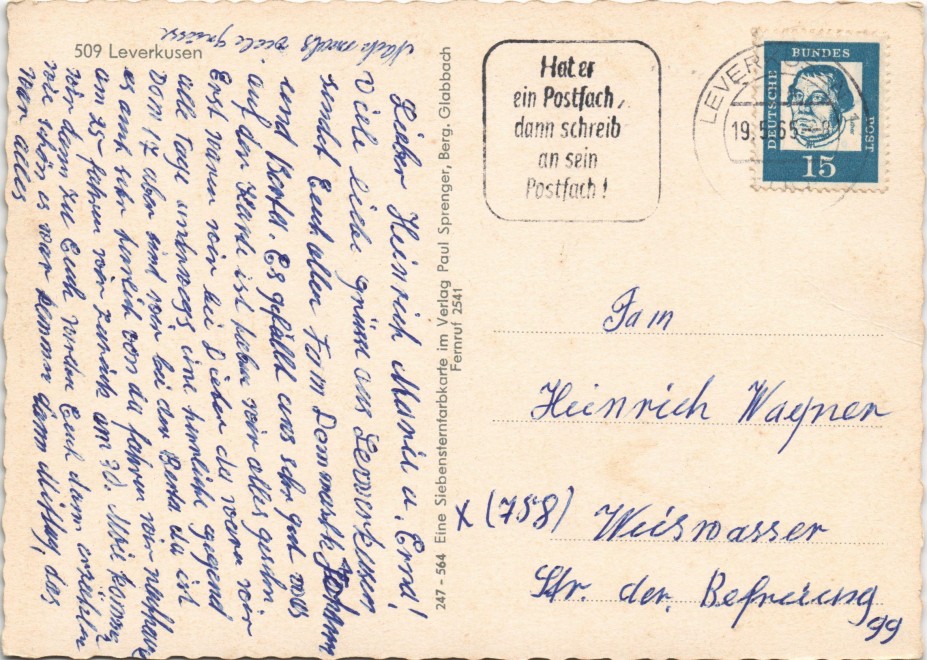 509 Leverkusen
Nachmals viele grüsse
Lieber Heinrich Maria u. Erna!
Viele liebe grüsse aus Leverkusen
sendet Euch allen Fam Demmark Johann
und Berta. Es gefällt uns sehr gut was
auf der Karte ist haben wir alles gesehn.
Erst waren wir bei Dieter da waren wir
alle Tage unterwegs eine herrliche gegend
Dom 17 aber sind wir bei der Berta da ist
es auch sehr von da fahren wir nachhause
am 25 fahren wir zurück am 30. Mai kommen
wir dann zu Euch werden Euch dann erzählen
wie schön es war kommen dann Mittag, das
war alles
247 - 564 Eine Siebensternfarbkarte im Verlag Paul Sprenger, Berg. Gladbach
Fernruf 2541
Hat er
ein Postfach,
dann schreib
an sein
Postfach!
LEVERKUSEN
19.5.65
DEUTSCHE
BUNDES
POST
15
Fam
Heinrich Wagner
x (758) Weiswasser
Str. der. Befreiung
99